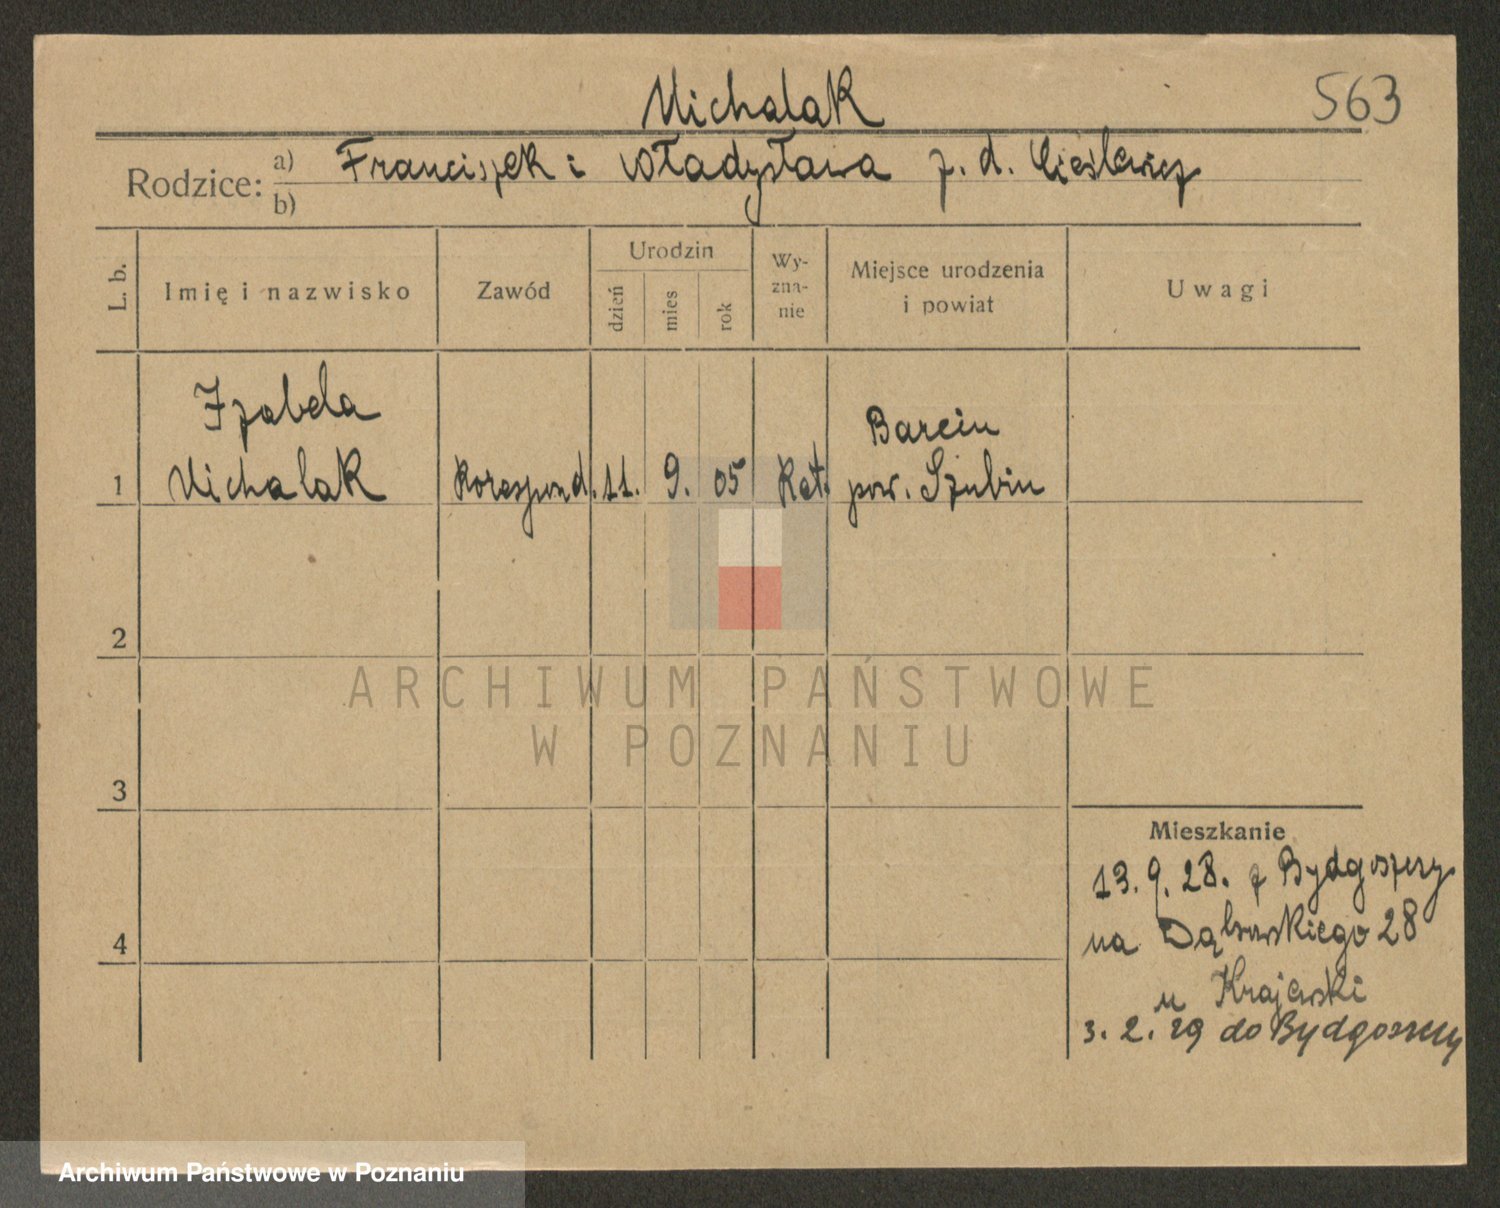 Michalak
563
Rodzice: a) Franciszek i Władysława z. d. Cieślewicz
b)
L. b.
Imię i nazwisko
Zawód
Urodzin
dzień
mies
rok
Wy-
zna-
nie
Miejsce urodzenia
i powiat
Uwagi
Izabela
Barcin
1 Michalak Korespond. 11. 9. 05 Kat. pow. Szubin
2
ARCHIWUM PAŃSTWOWE
W POZNANIU
3
Mieszkanie
13. 9. 28. z Bydgoszczy
4
na Dąbrowskiego 28
u Krajewski
3. 2. 29 do Bydgoszczy
Archiwum Państwowe w Poznaniu